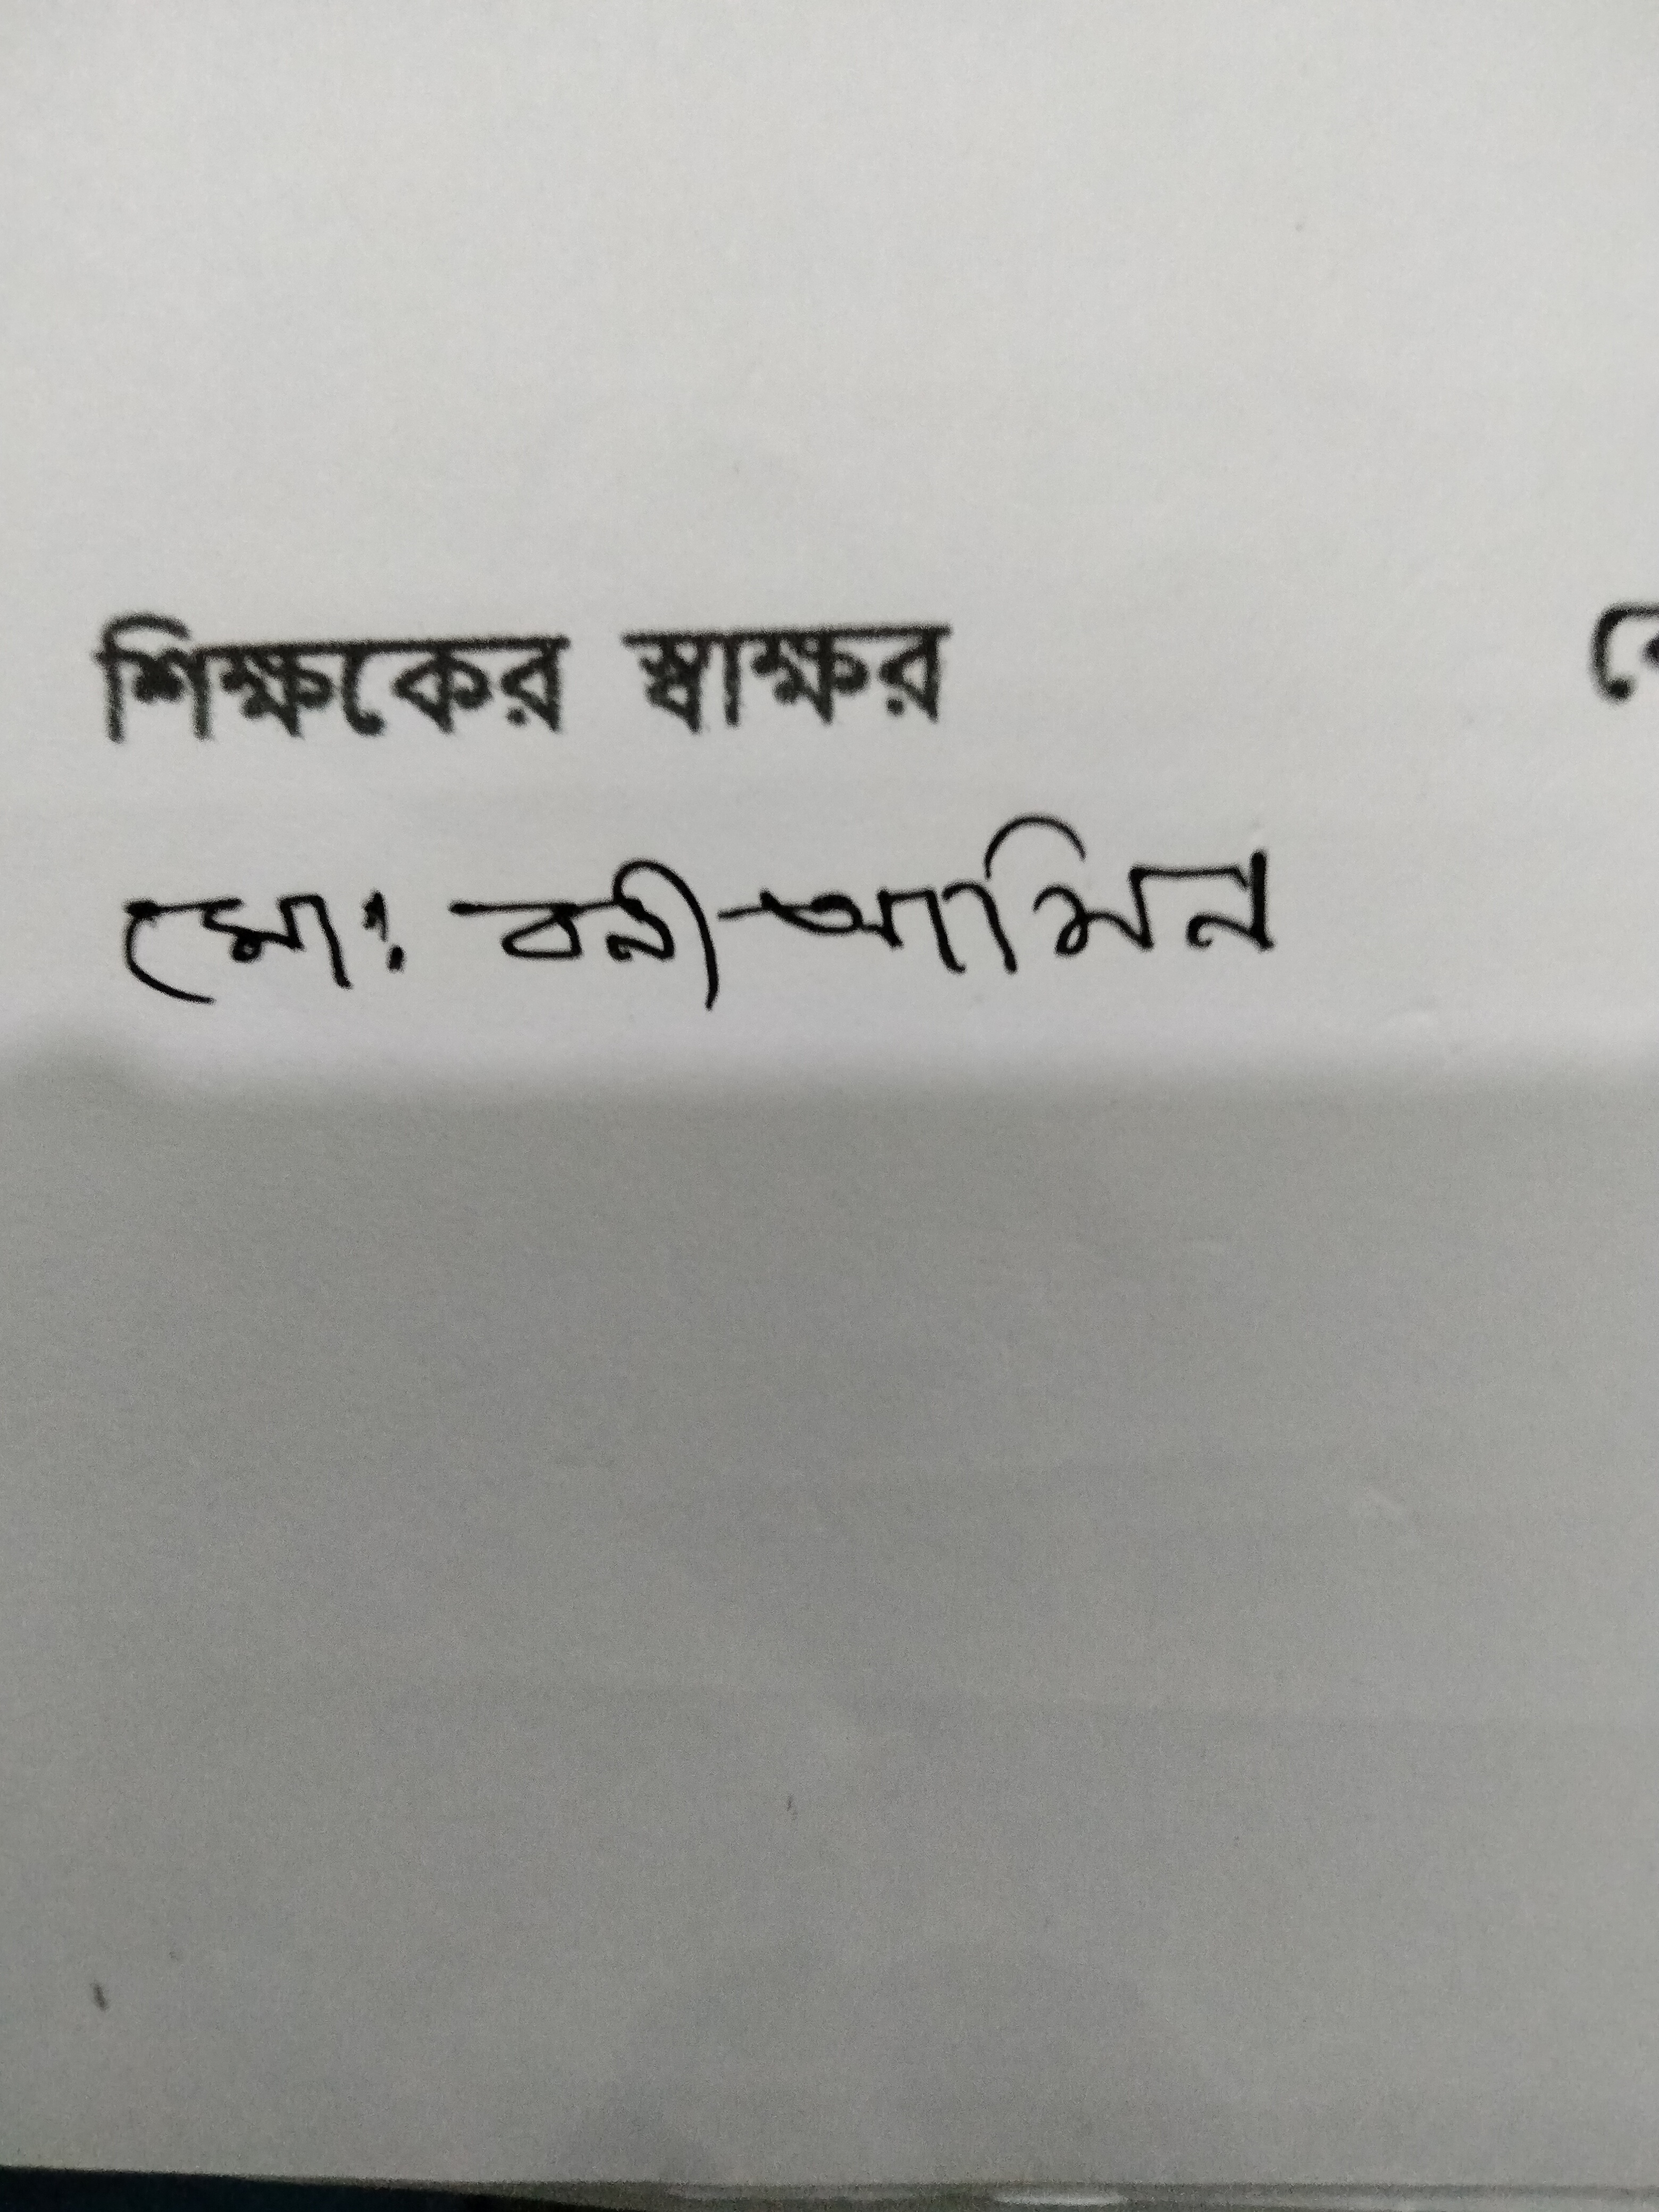 শিক্ষকের স্বাক্ষর
মোঃ বনী-আমিন